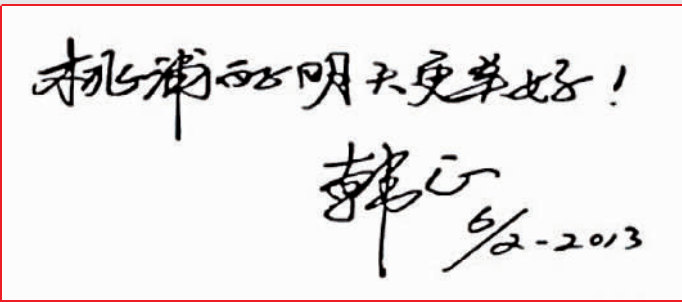 桃浦的明天更美好！
韩正
6/2-2013